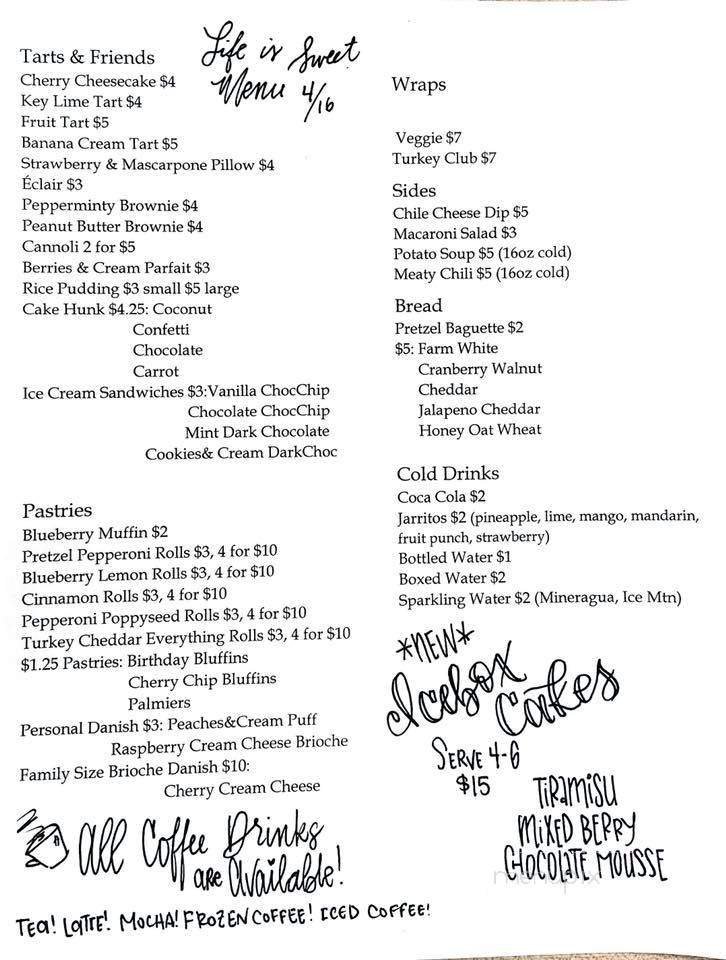 Life is Sweet
Menu 4/16
Tarts & Friends
Cherry Cheesecake $4
Key Lime Tart $4
Fruit Tart $5
Banana Cream Tart $5
Strawberry & Mascarpone Pillow $4
Éclair $3
Pepperminty Brownie $4
Peanut Butter Brownie $4
Cannoli 2 for $5
Berries & Cream Parfait $3
Rice Pudding $3 small $5 large
Cake Hunk $4.25: Coconut
Confetti
Chocolate
Carrot
Ice Cream Sandwiches $3:Vanilla ChocChip
Chocolate ChocChip
Mint Dark Chocolate
Cookies& Cream DarkChoc
Pastries
Blueberry Muffin $2
Pretzel Pepperoni Rolls $3, 4 for $10
Blueberry Lemon Rolls $3, 4 for $10
Cinnamon Rolls $3, 4 for $10
Pepperoni Poppyseed Rolls $3, 4 for $10
Turkey Cheddar Everything Rolls $3, 4 for $10
$1.25 Pastries: Birthday Bluffins
Cherry Chip Bluffins
Palmiers
Personal Danish $3: Peaches&Cream Puff
Raspberry Cream Cheese Brioche
Family Size Brioche Danish $10:
Cherry Cream Cheese
All Coffee Drinks
are Available!
Tea! Latte! Mocha! Frozen Coffee! Iced Coffee!
Wraps
Veggie $7
Turkey Club $7
Sides
Chile Cheese Dip $5
Macaroni Salad $3
Potato Soup $5 (16oz cold)
Meaty Chili $5 (16oz cold)
Bread
Pretzel Baguette $2
$5: Farm White
Cranberry Walnut
Cheddar
Jalapeno Cheddar
Honey Oat Wheat
Cold Drinks
Coca Cola $2
Jarritos $2 (pineapple, lime, mango, mandarin,
fruit punch, strawberry)
Bottled Water $1
Boxed Water $2
Sparkling Water $2 (Mineragua, Ice Mtn)
*NEW*
Icebox
Cakes
Serve 4-6
$15
Tiramisu
Mixed Berry
Chocolate Mousse
menupix